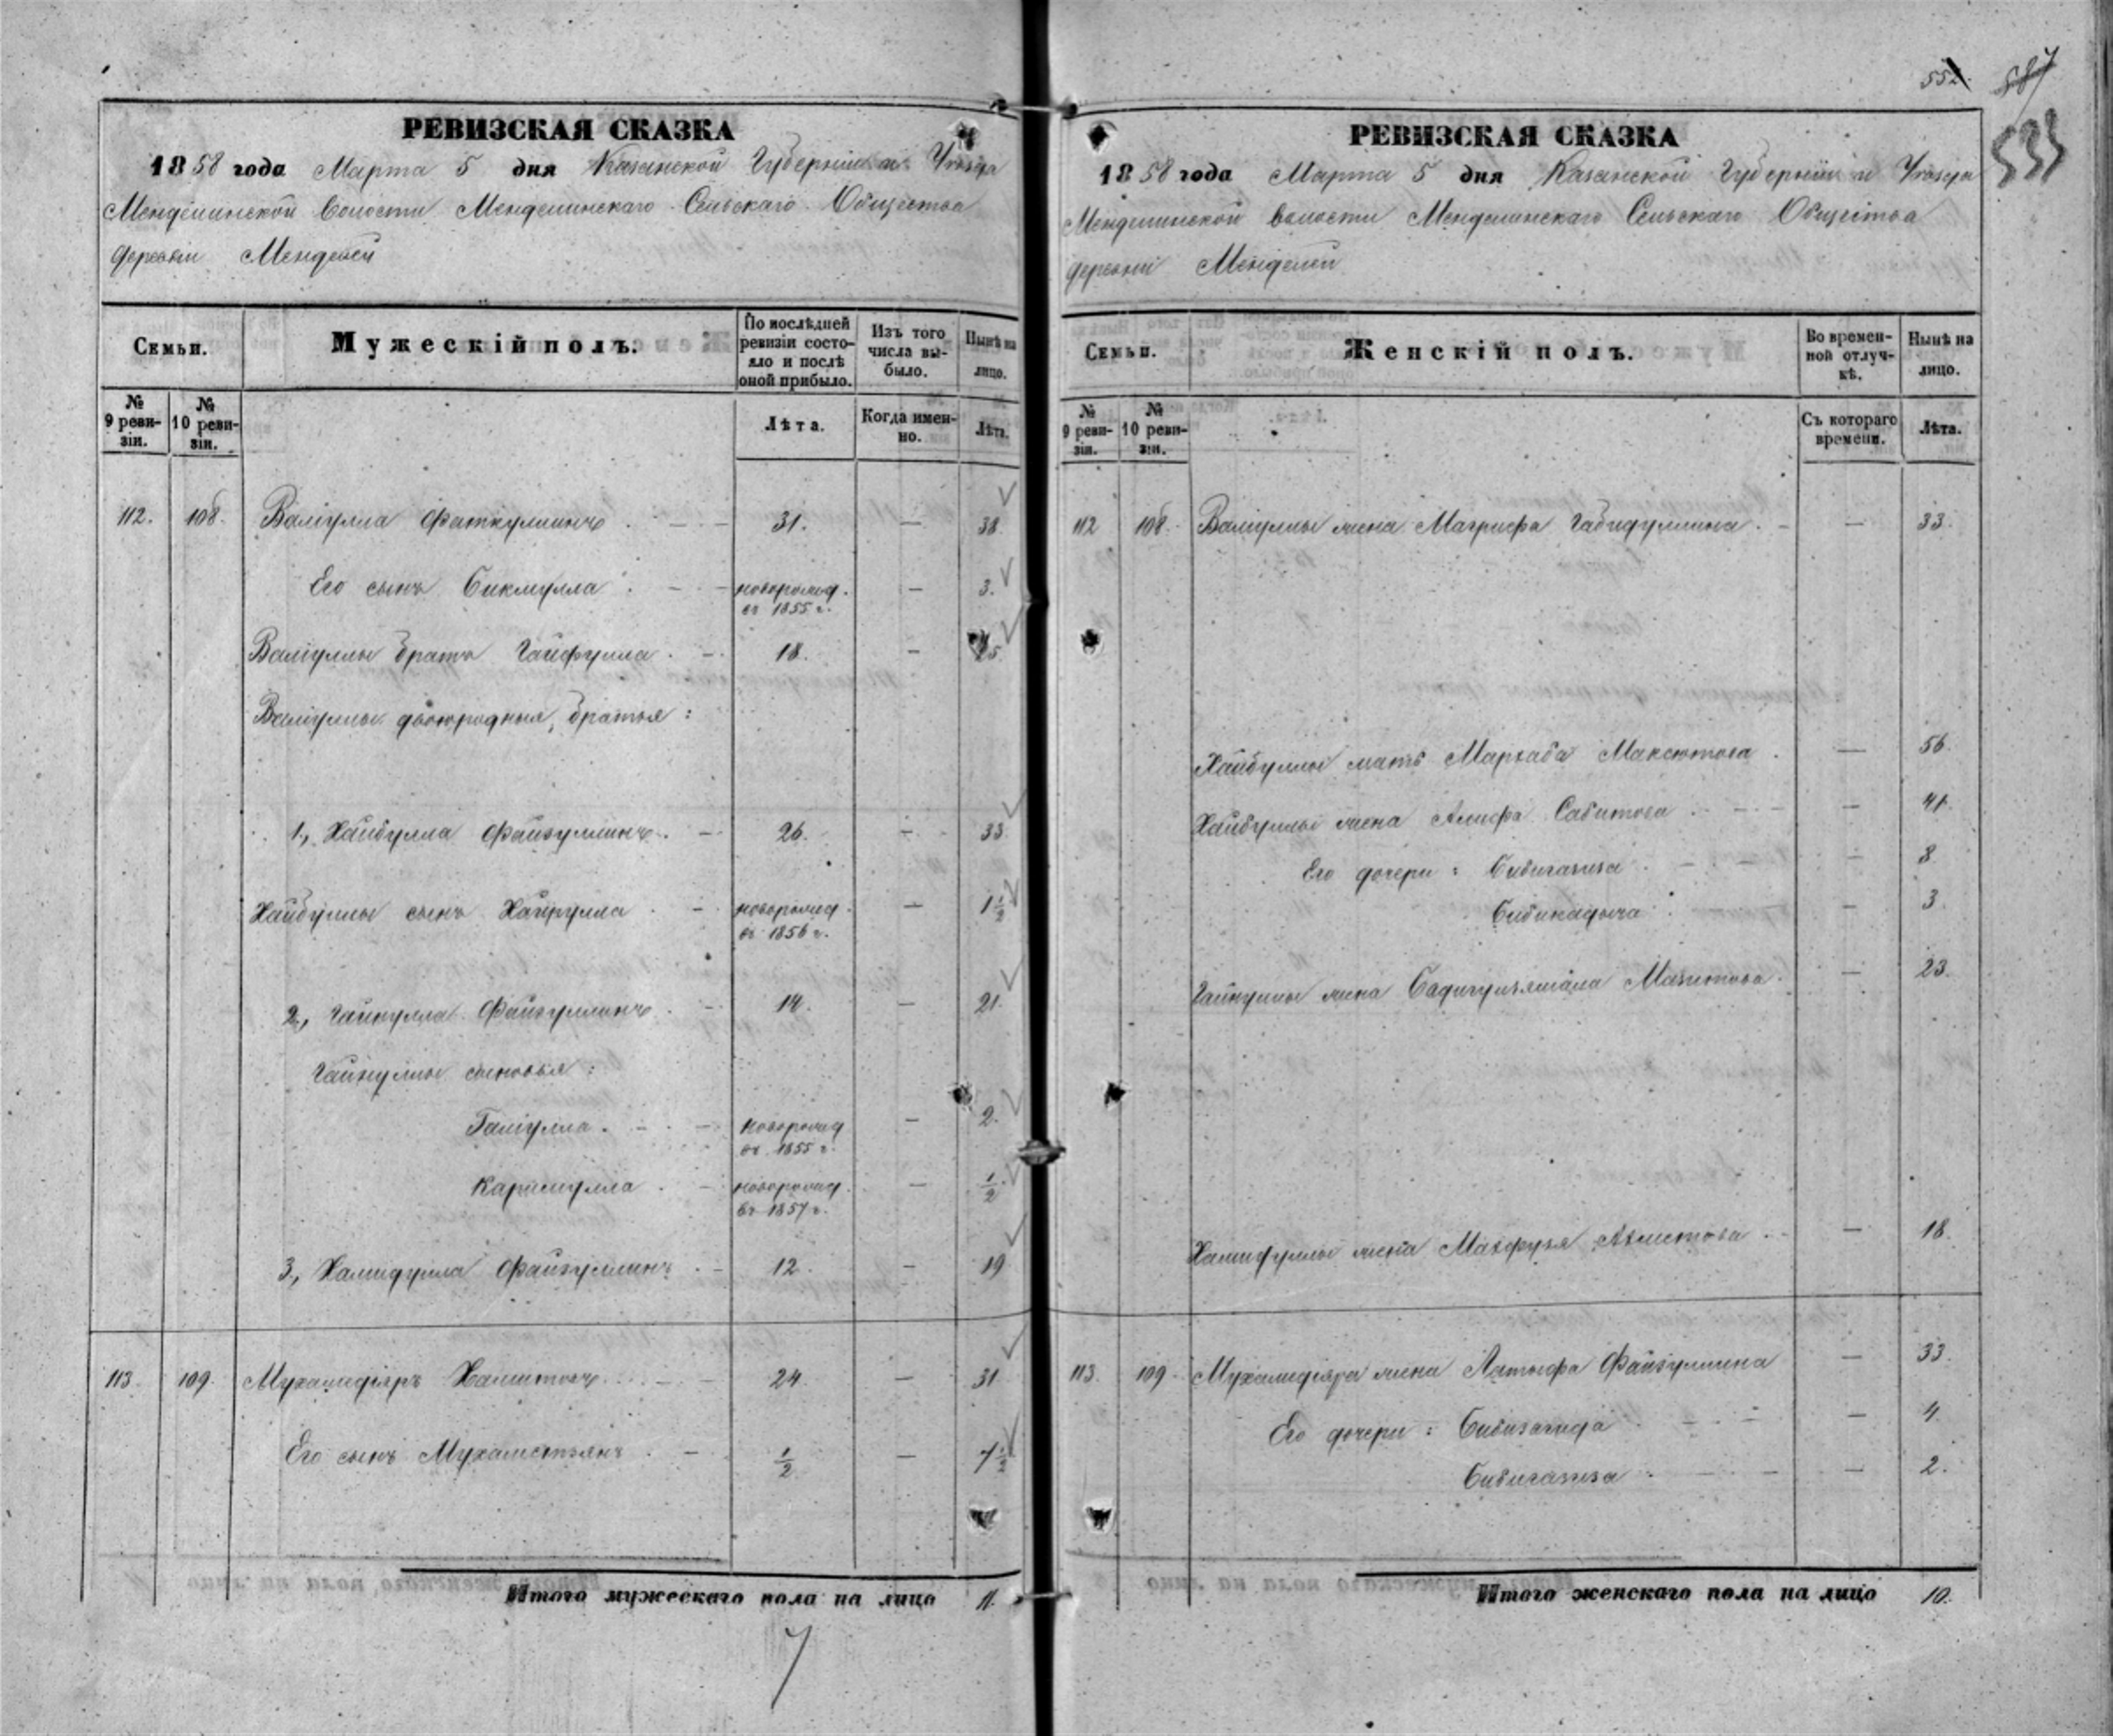 РЕВИЗСКАЯ СКАЗКА
1858 года Марта 5 дня Казанской Губернiи и Уѣзда
Менделинской Волости Менделинскаго Сельскаго Общества
деревни Менделей
Семьи.
Мужескiй полъ.
По послѣдней ревизiи состояло и послѣ оной прибыло.
Изъ того числа выбыло.
Нынѣ на лицо.
№ 9 ревизiи.
№ 10 ревизiи.
Лѣта.
Когда именно.
Лѣта.
112. 108. Валiулла Фаткуллинъ . — 31. — 38
Его сынъ Бикмулла . — новорожд. въ 1855 г. — 3.
Валiуллы братъ Гайфулла . — 18. — 25
Валiуллы двоюродныя братья :
1, Хайбулла Файзуллинъ . — 26. — 33.
Хайбуллы сынъ Хайрулла . — новорожд. въ 1856 г. — 1 1/2
2, Гайнулла Файзуллинъ . — 14. — 21.
Гайнуллы сыновья :
Галiулла . — новорожд въ 1855 г. — 2.
Каримулла . — новорожд. въ 1857 г. — 1/2
3, Хамидулла Файзуллинъ . — 12. — 19
113. 109. Мухамедiяръ Хамитовъ . — 24. — 31
Его сынъ Мухаметзянъ . — 1/2 — 7 1/2
Итого мужескаго пола на лицо 11.
7
552. 587
533
РЕВИЗСКАЯ СКАЗКА
1858 года Марта 5 дня Казанской Губернiи и Уѣзда
Менделинской волости Менделинскаго Сельскаго Общества
деревни Менделей
Семьи.
Женскiй полъ.
Во временной отлучкѣ.
Нынѣ на лицо.
№ 9 ревизiи.
№ 10 ревизiи.
Съ котораго времени.
Лѣта.
112 108. Валiуллы жена Магрифа Габидуллина . — 33.
Хайбуллы мать Мархаба Максютова . — 56.
Хайбуллы жена Алифа Сабитова . — 41.
Его дочери : Бибигазиза . — 8
Бибикадыча . — 3
Гайнуллы жена Бадигульямала Мазитова . — 23.
Хамидуллы жена Махфузя Ахметова . — 18.
113. 109. Мухамедiяра жена Латыфа Файзуллина — 33
Его дочери : Бибизагида . — 4
Бибигазиза . — 2.
Итого женскаго пола на лицо 10.